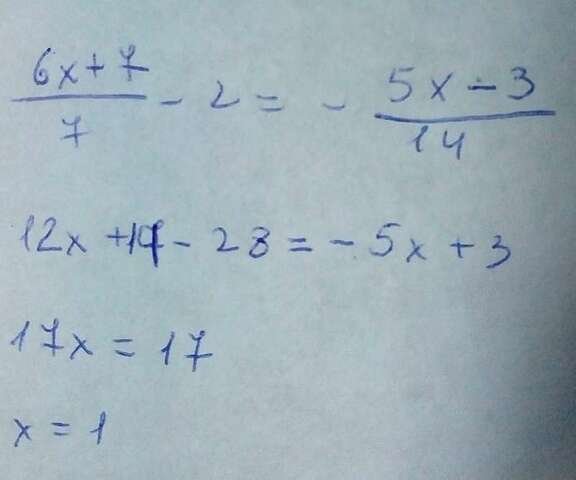 6x+7/7 - 2 = - 5x-3/14
12x +14 - 28 = - 5x + 3
17x = 17
x = 1